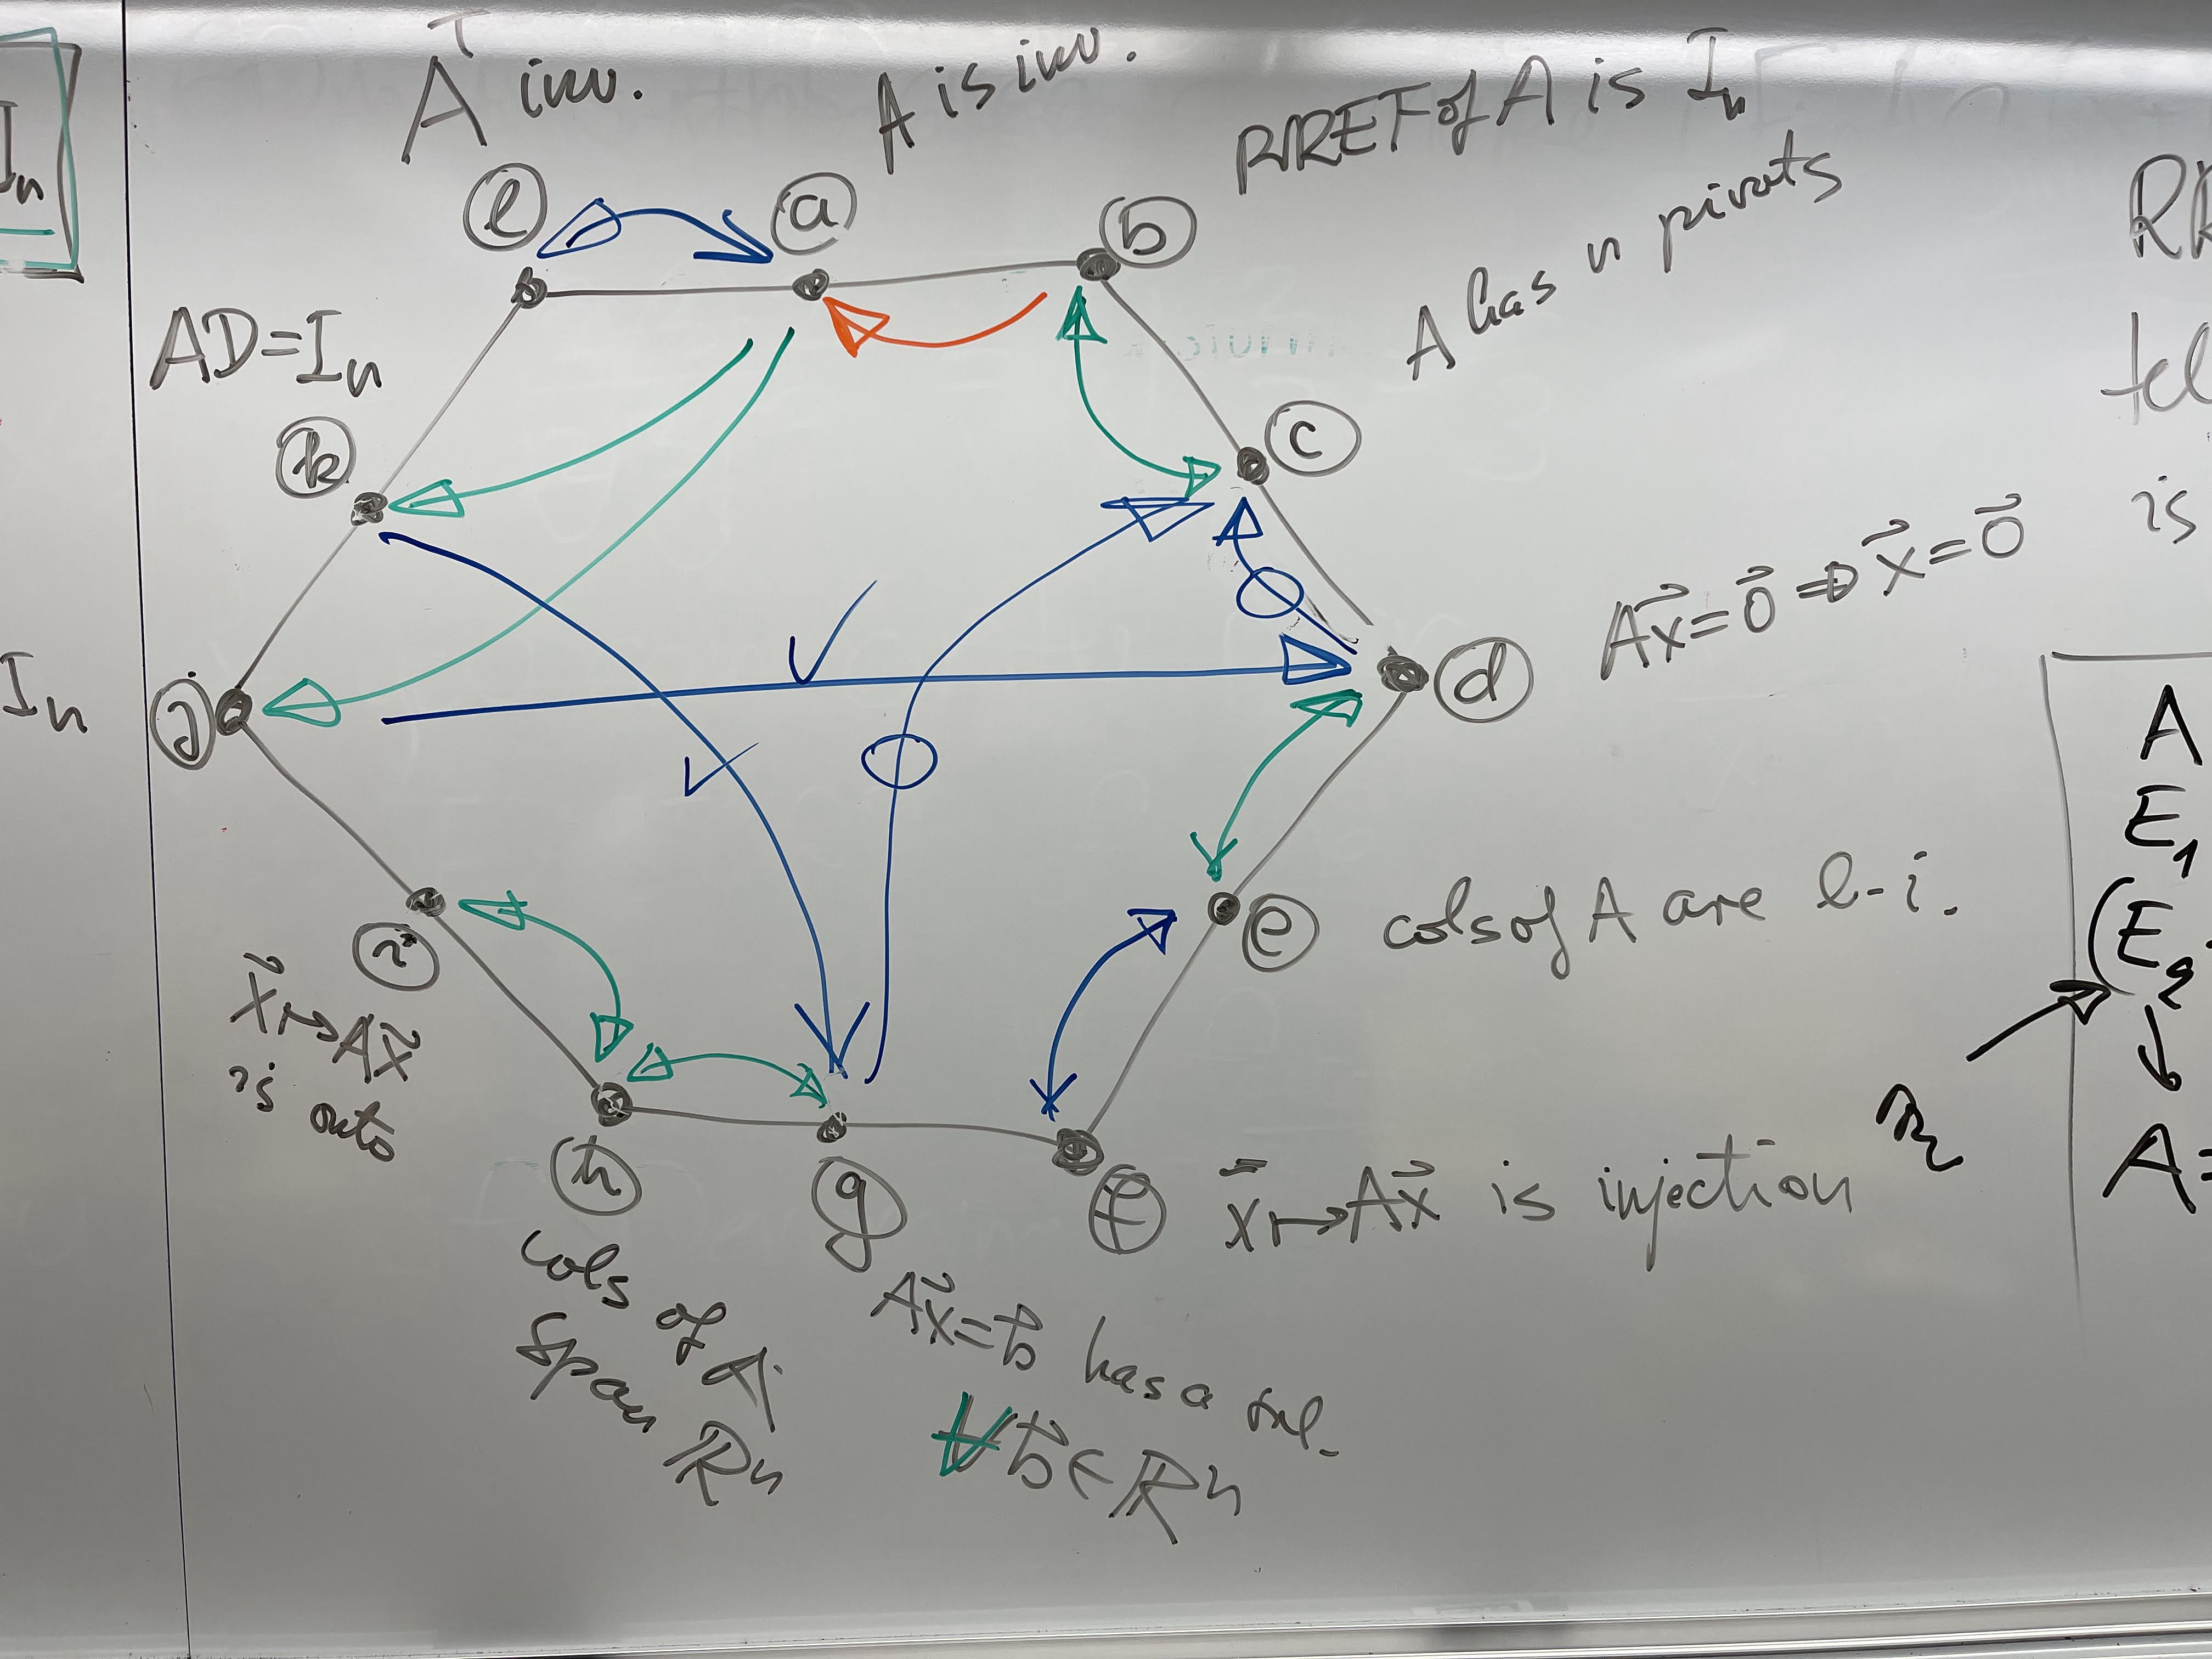 Aᵀ inv.
A is inv.
RREF of A is Iₙ
Iₙ
ⓛ
ⓐ
ⓑ
A has n pivots
AD=Iₙ
ⓚ
ⓒ
is
Ax⃗=0⃗ ⇒ x⃗=0⃗
Iₙ
ⓙ
ⓓ
A
E₁
(E₂
ⓘ
ⓔ
cols of A are l-i.
x⃗↦Ax⃗
is onto
A=
ⓗ
ⓖ
ⓕ
x⃗↦Ax⃗ is injection
cols of A
span ℝⁿ
Ax⃗=b⃗ has a sol.
∀b⃗∈ℝⁿ